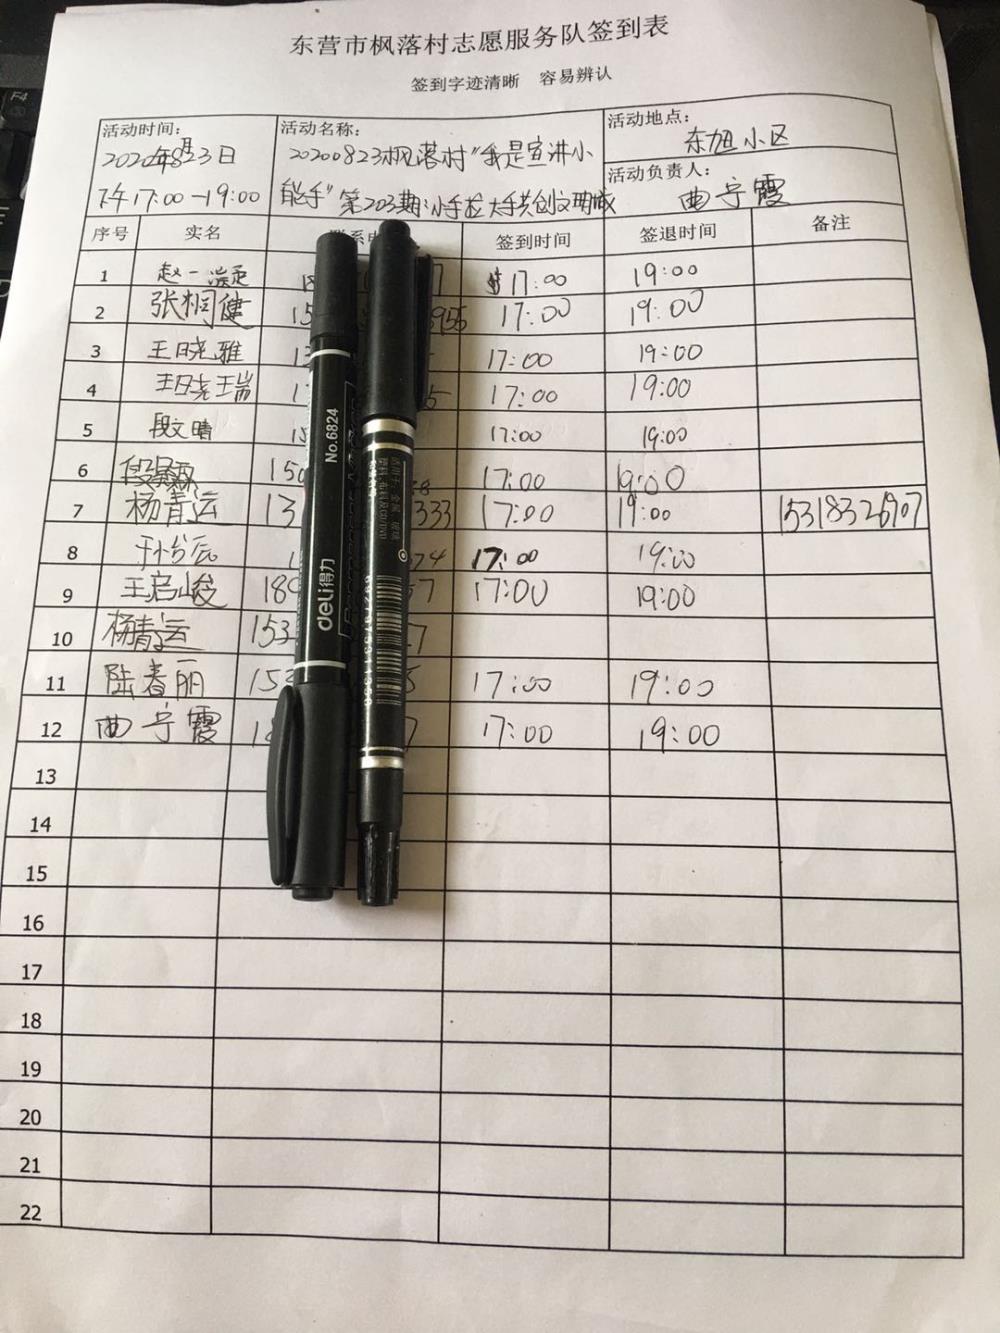 F4
东营市枫落村志愿服务队签到表
签到字迹清晰 容易辨认
活动时间:
2020年8月23日
下午17:00-19:00
活动名称:
20200823枫落村"我是宣讲小
能手"第203期:小手拉大手共创文明城
活动地点:
东旭小区
活动负责人:
曲宁霞
序号 实名 签到时间 签退时间 备注
1 赵一 17:00 19:00
2 张桐健 15 955 17:00 19:00
3 王晓雅 13 17:00 19:00
4 王晓瑞 1 5 17:00 19:00
5 段文晴 15 17:00 19:00
6 150 8 17:00 19:00
7 杨青运 13 333 17:00 19:00 15318326907
8 1 74 17:00 19:00
9 王启峻 189 57 17:00 19:00
10 杨青运 153 7
11 陆春丽 153 5 17:00 19:00
12 曲宁霞 18 7 17:00 19:00
13
14
15
16
17
18
19
20
21
22
No.6824
deli得力